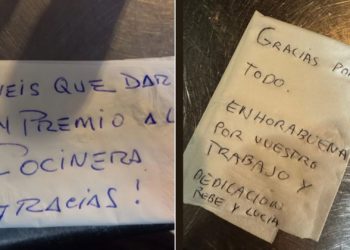 EIS QUE DAR
N PREMIO A L
COCINERA
GRACIAS!
GRACIAS POR
TODO.
ENHORABUENA
POR VUESTRO
TRABAJO Y
DEDICACION
REBE Y LUCIA